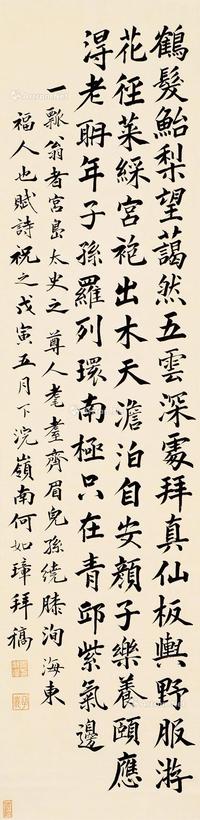 鶴髮鮐梨望藹然五雲深處拜真仙板輿野服游
花徑菜綵宮袍出木天澹泊自安顏子樂養頤應
淂老聃年子孫羅列環南極只在青邱紫氣邊
一瓢翁者宮島太史之尊人耄耋齊眉兒孫繞膝洵海東
福人也賦詩祝之戊寅五月下浣嶺南何如璋拜稿